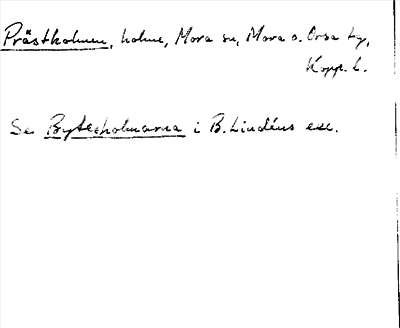 Prästholmen, holme, Mora sn, Mora o. Orsa tg,
Kopp. l.
Se Byteholmarna i B. Lindéns exc.